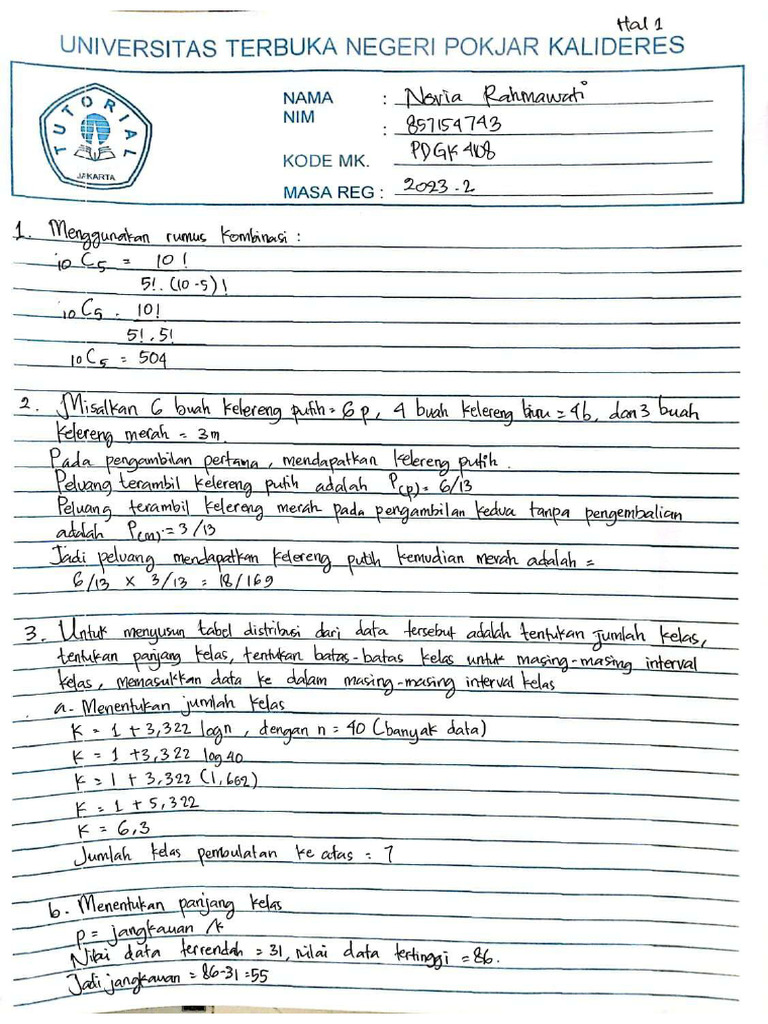 Hal 1
UNIVERSITAS TERBUKA NEGERI POKJAR KALIDERES
TUTORIAL
JAKARTA
NAMA : Novia Rahmawati
NIM : 857154743
KODE MK. PDGK4108
MASA REG : 2023.2
1. Menggunakan rumus kombinasi :
10 C5 = 10 !
5! . (10-5) !
10 C5 . 10!
5! . 5!
10 C5 = 504
2. Misalkan 6 buah kelereng putih = 6p, 4 buah kelereng biru = 4b, dan 3 buah
kelereng merah = 3m.
Pada pengambilan pertama, mendapatkan kelereng putih.
Peluang terambil kelereng putih adalah P(p) = 6/13
Peluang terambil kelereng merah pada pengambilan kedua tanpa pengembalian
adalah P(m) = 3/13
Jadi peluang mendapatkan kelereng putih kemudian merah adalah =
6/13 x 3/13 = 18/169
3. Untuk menyusun tabel distribusi dari data tersebut adalah tentukan jumlah kelas,
tentukan panjang kelas, tentukan batas-batas kelas untuk masing-masing interval
kelas, memasukkan data ke dalam masing-masing interval kelas
a. Menentukan jumlah kelas
K = 1 + 3,322 log n , dengan n = 40 (banyak data)
K = 1 + 3,322 log 40
K = 1 + 3,322 (1,602)
K = 1 + 5,322
K = 6,3
Jumlah kelas pembulatan ke atas = 7
b. Menentukan panjang kelas
P = jangkauan /k
Nilai data terrendah = 31, nilai data tertinggi = 86.
Jadi jangkauan = 86-31 = 55